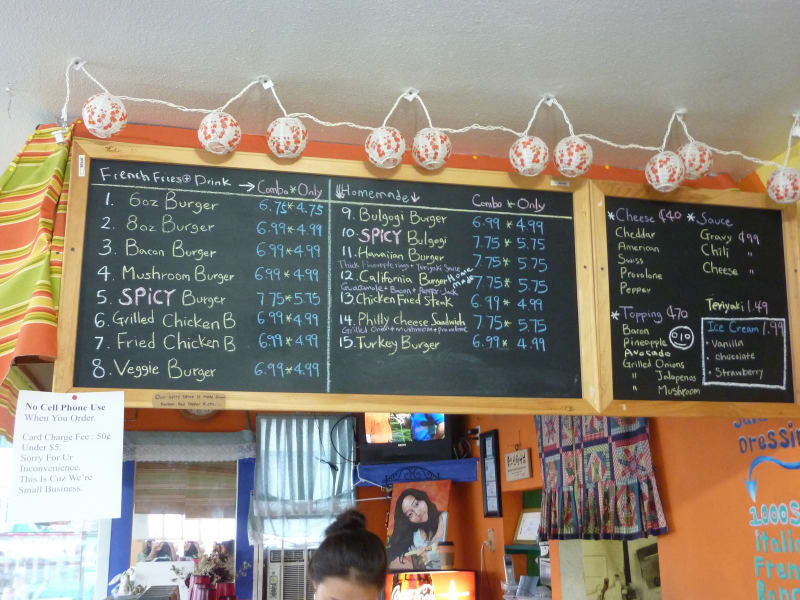 French Fries + Drink → Combo * Only
1. 6oz Burger 6.75 * 4.75
2. 8oz Burger 6.99 * 4.99
3. Bacon Burger 6.99 * 4.99
4. Mushroom Burger 6.99 * 4.99
5. SPICY Burger 7.75 * 5.75
6. Grilled Chicken B 6.99 * 4.99
7. Fried Chicken B 6.99 * 4.99
8. Veggie Burger 6.99 * 4.99
Homemade Combo * Only
9. Bulgogi Burger 6.99 * 4.99
10. SPICY Bulgogi 7.75 * 5.75
11. Hawaiian Burger 7.75 * 5.75
Thick Pineapple rings + Teriyaki Sauce
12. California Burger Home made 7.75 * 5.75
Guacamole + Bacon + Pepper Jack
13. Chicken Fried Steak 6.99 * 4.99
14. Philly cheese Sandwich 7.75 * 5.75
Grilled Onion + mushroom + provolone
15. Turkey Burger 6.99 * 4.99
* Cheese ¢40
Cheddar
American
Swiss
Provolone
Pepper
* Sauce
Gravy ¢99
Chili "
Cheese "
Teriyaki 1.49
* Topping ¢70
Bacon
Pineapple
Avocado
Grilled Onions
" Jalapenos
" Mushroom
Ice Cream 1.99
• Vanilla
• chocolate
• Strawberry
No Cell Phone Use
When You Order.
Card Charge Fee : 50¢
Under $5.
Sorry For Ur
Inconvenience.
This Is Cuz We're
Small Business.
Coca-Cola
Dressin
1000S
Ital
Fren
Ranc